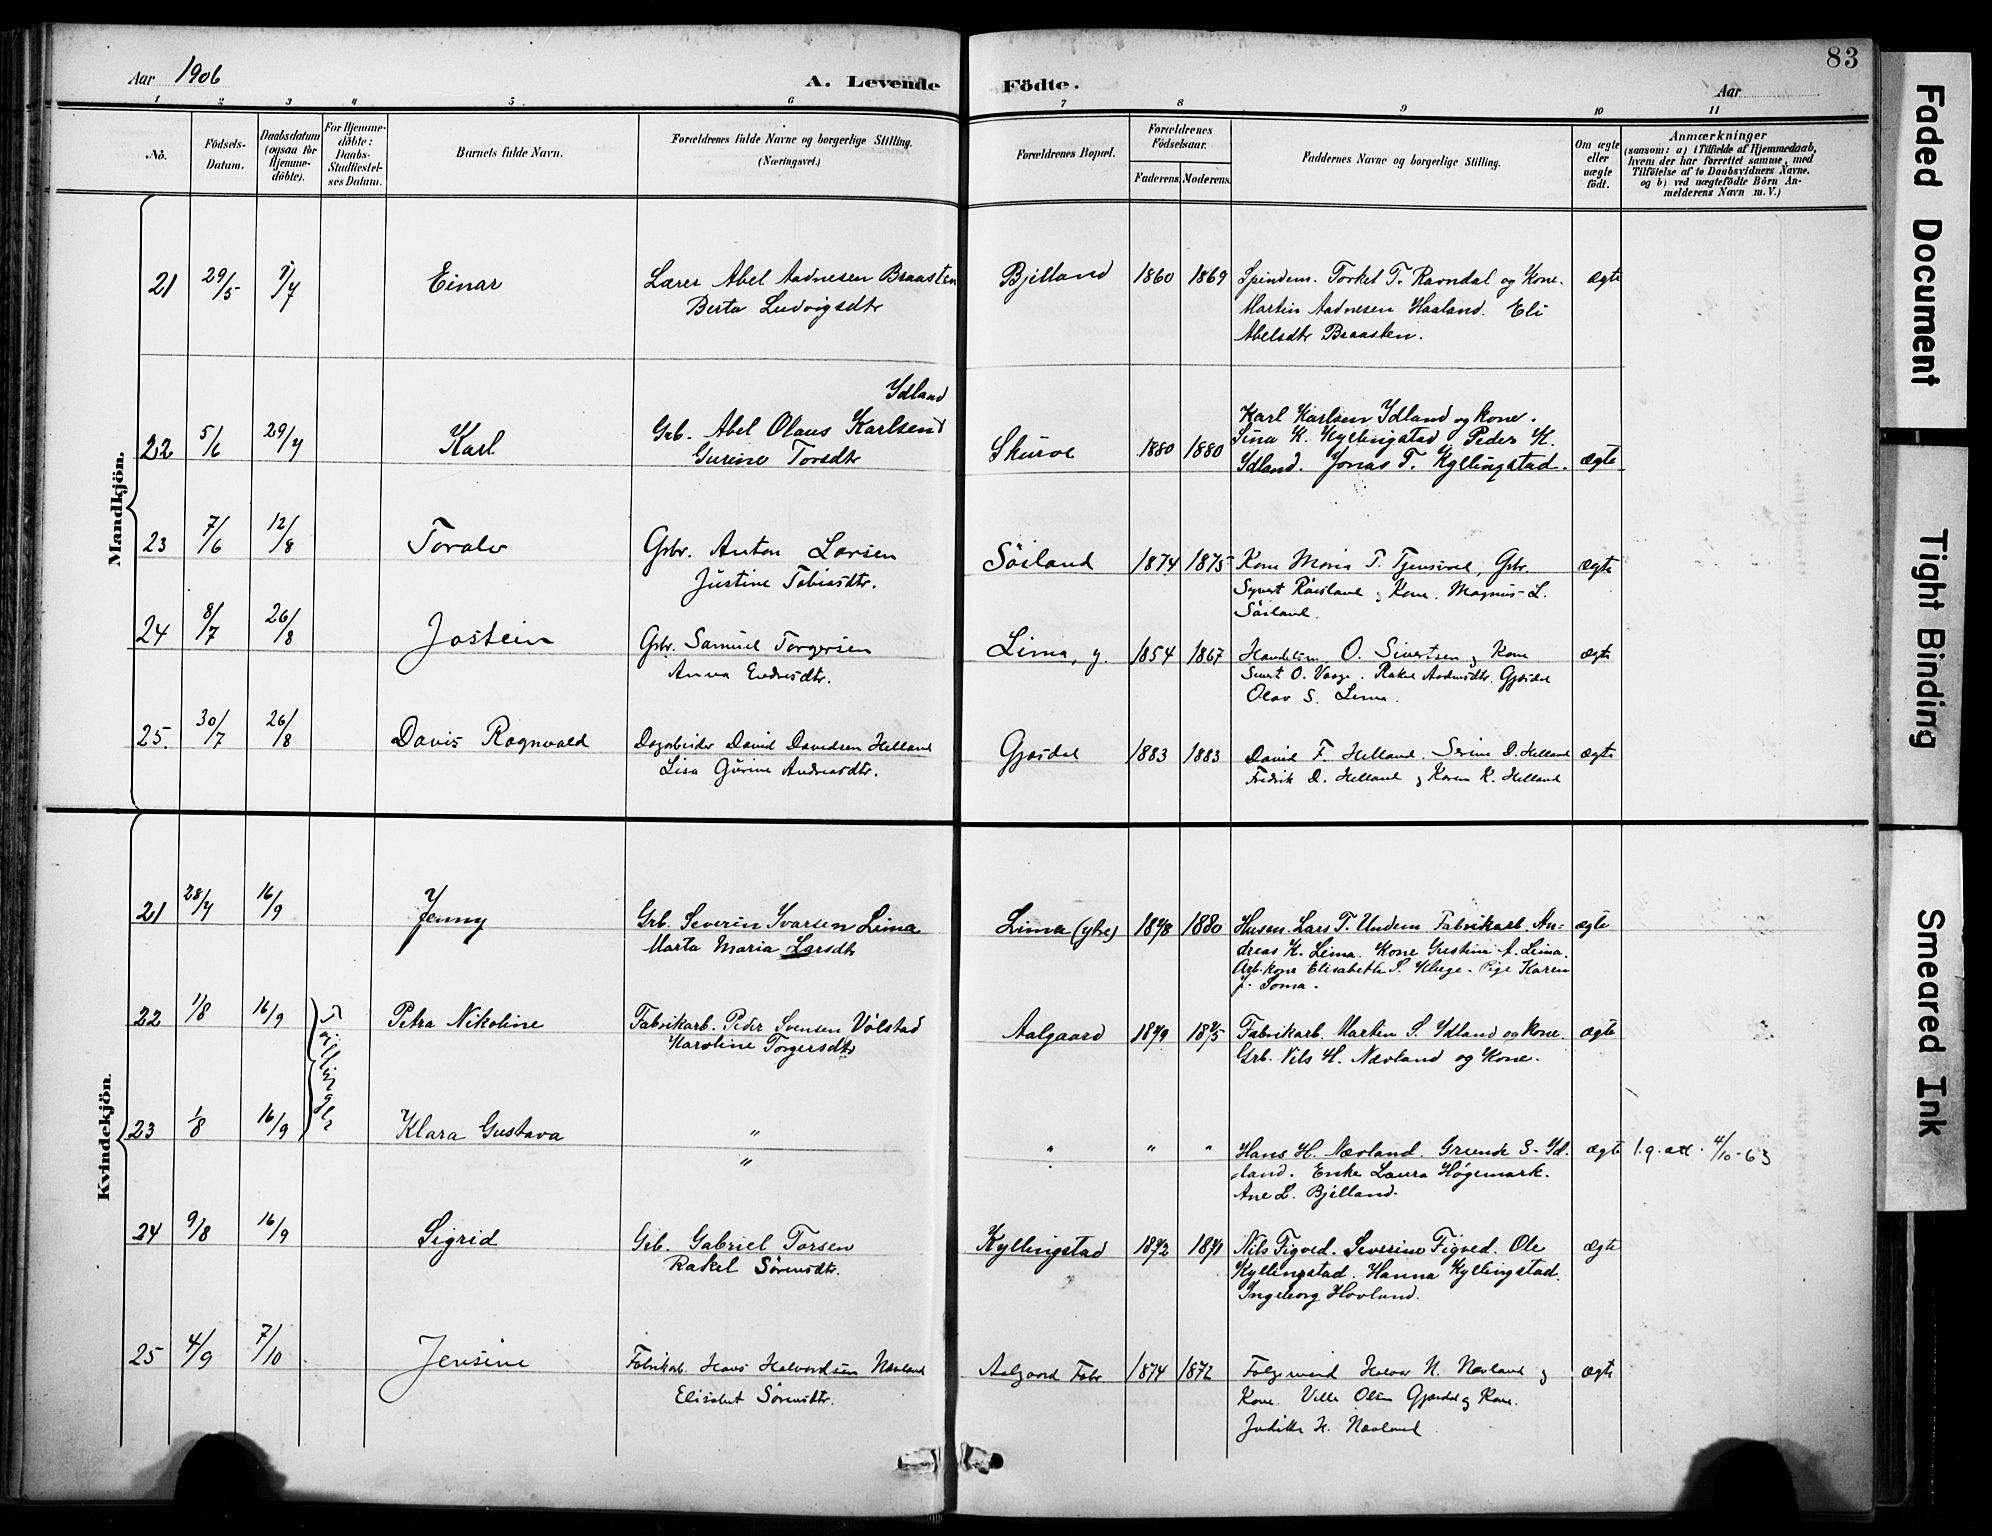 83
Aar 1906
A. Levende Födte.
Aar
1 2 3 4 5 6 7 8 9 10 11
No.
Födsels-
Datum.
Daabsdatum
(ogsaa for
Hjemme-
döbte).
For Hjemme-
döbte:
Daabs-
Stadfæstel-
ses Datum.
Barnets fulde Navn.
Forældrenes fulde Navne og borgerlige Stilling.
(Næringsvei.)
Forældrenes Bopæl.
Forældrenes
Födselsaar.
Faderens. Moderens.
Faddernes Navne og borgerlige Stilling.
Om ægte
eller
uægte
født.
Anmærkninger
(saasom: a) i Tilfælde af Hjemmedaab,
hvem der har forrettet samme, med
Tilföielse af to Daabsvidners Navne,
og b) ved uægtefödte Börn An-
melderens Navn m. V.)
Mandkjön.
21 29/5 /7 Einar Lærer Abel Aadnesen Braasten Bjelland 1860 1869 Spindem. Torkel T. Ravndal og Kone. ægte
Berta Ludvigsdtr Martin Aadnesen Haaland. Eli
Abelsdtr Braasten.
Ydland
22 5/6 29/7 Karl Grb. Abel Olaus Karlsen Skurve 1880 1880 Karl Karlsen Ydland og kone.
Gurine Torsdtr Sina K. Kyllingstad Peder K.
Ydland. Jonas T. Kyllingstad. ægte
23 7/6 12/8 Toralv Grbr. Anton Larsen Søiland 1874 1875 Kone Maria T. Grbr. ægte
Justine Tobiasdtr. Kone. Magnus L.
Søiland.
24 8/7 26/8 Jostein Grbr. Samuel Torgersen Lima, y. 1854 1867 O. Sivertsen og Kone ægte
Anna Endresdtr. Sivert O. Gjesdal
Olav S. Lima.
25. 30/7 26/8 Davis Ragnvald Dagarbeider David Davidsen Helland Gjesdal 1883 1883 David F. Helland. Serine D. Helland ægte
Lisa Gurine Andreasdtr. Fredrik D. Helland og Karen K. Helland
Kvindekjön.
21 28/7 16/9 Jenny Grb. Severin Ivarsen Lima Lima (ytre) 1878 1880 Husm. Lars T. Undem Fabrikarb. An- ægte
Marta Maria Larsdtr dreas K. Lima. Kone Gustina A. Lima.
Arb.kone Elisabeth S. Kluge. Pige Karen
J. Soma.
22 1/8 16/9 Tvillinger Petra Nikoline Fabrikarb. Peder Svensen Vølstad Aalgaard 1879 1875 Fabrikarb. Martin S. Ydland og kone. ægte
Karoline Torgersdtr Grb. Nils H. Nævland og Kone.
23 1/8 16/9 Klara Gustava " " " " Hans H. Nævland. Grunde S. Yd- ægte 4/10-63
" land. Enke Laura Høgemark.
Ane L. Bjelland.
24 9/8 16/9 Sigrid Grb. Gabriel Torsen Kyllingstad 1872 1871 Nils Figved. Severine Figved. Ole ægte
Rakel Sørensdtr. Kyllingstad. Hanna Kyllingstad.
Ingeborg Hovland.
25 4/9 7/10 Jensine Fabrikarb. Hans Halvordsen Nævland Aalgaard Fabr. 1874 1872 Halvor N. Nævland og ægte
Elisabet Sørensdtr. Kone. Ville Olsen Gjesdal og Kone.
Judithe H. Nævland
Faded Document
Tight Binding
Smeared Ink